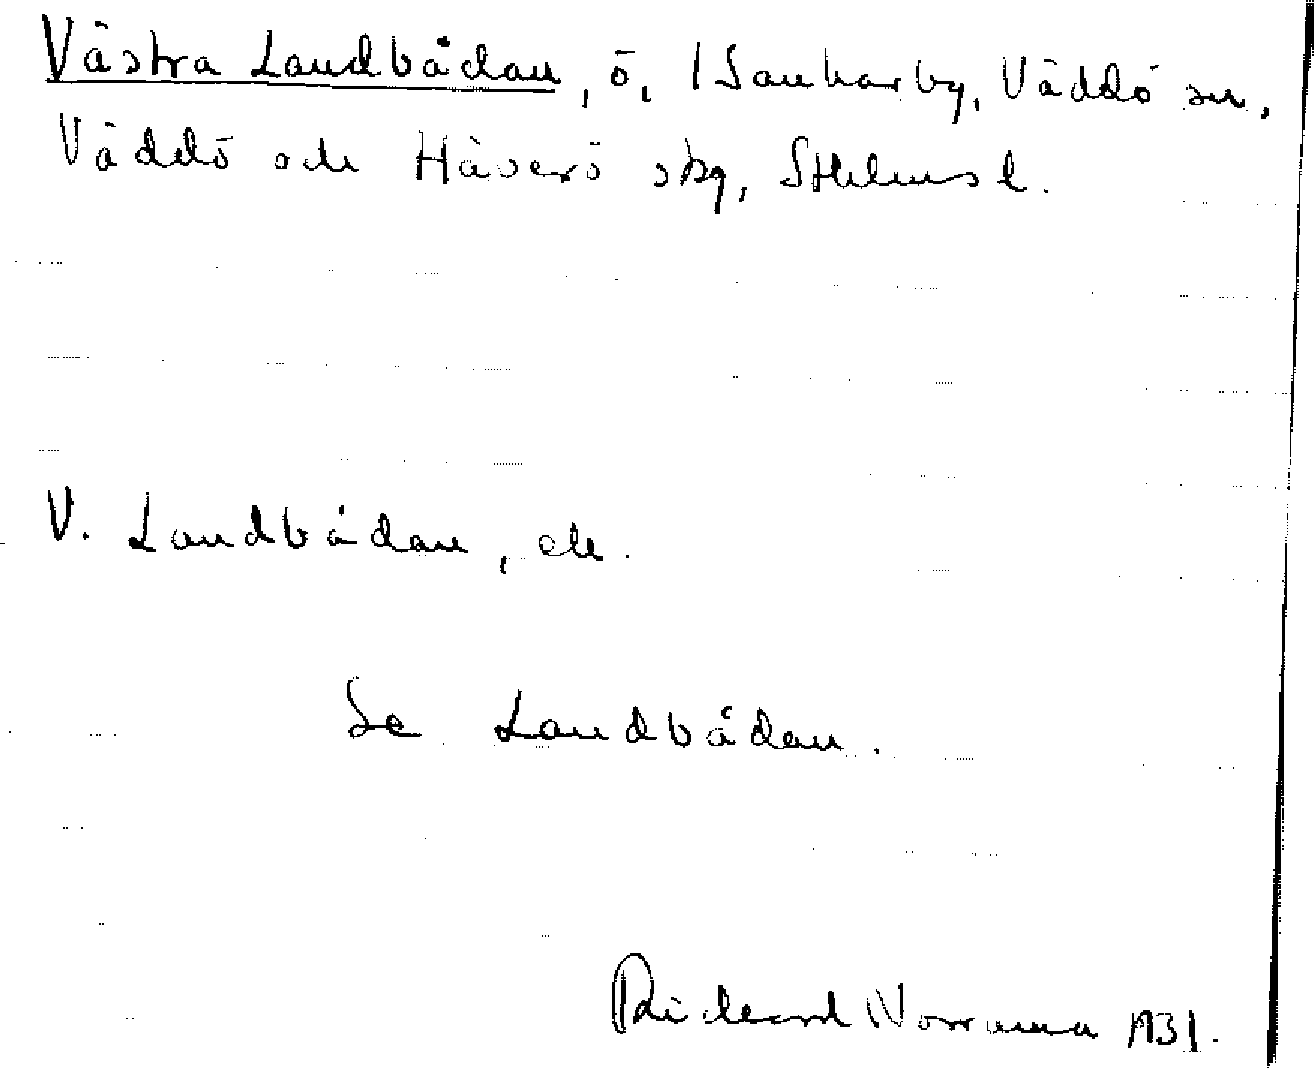 Västra Landbådan, ö, Väddö sn,
Väddö och Häverö skg, Sthlms l.
V. Landbådan, ek.
Se Landbådan.
Rickard Norrman 1931.